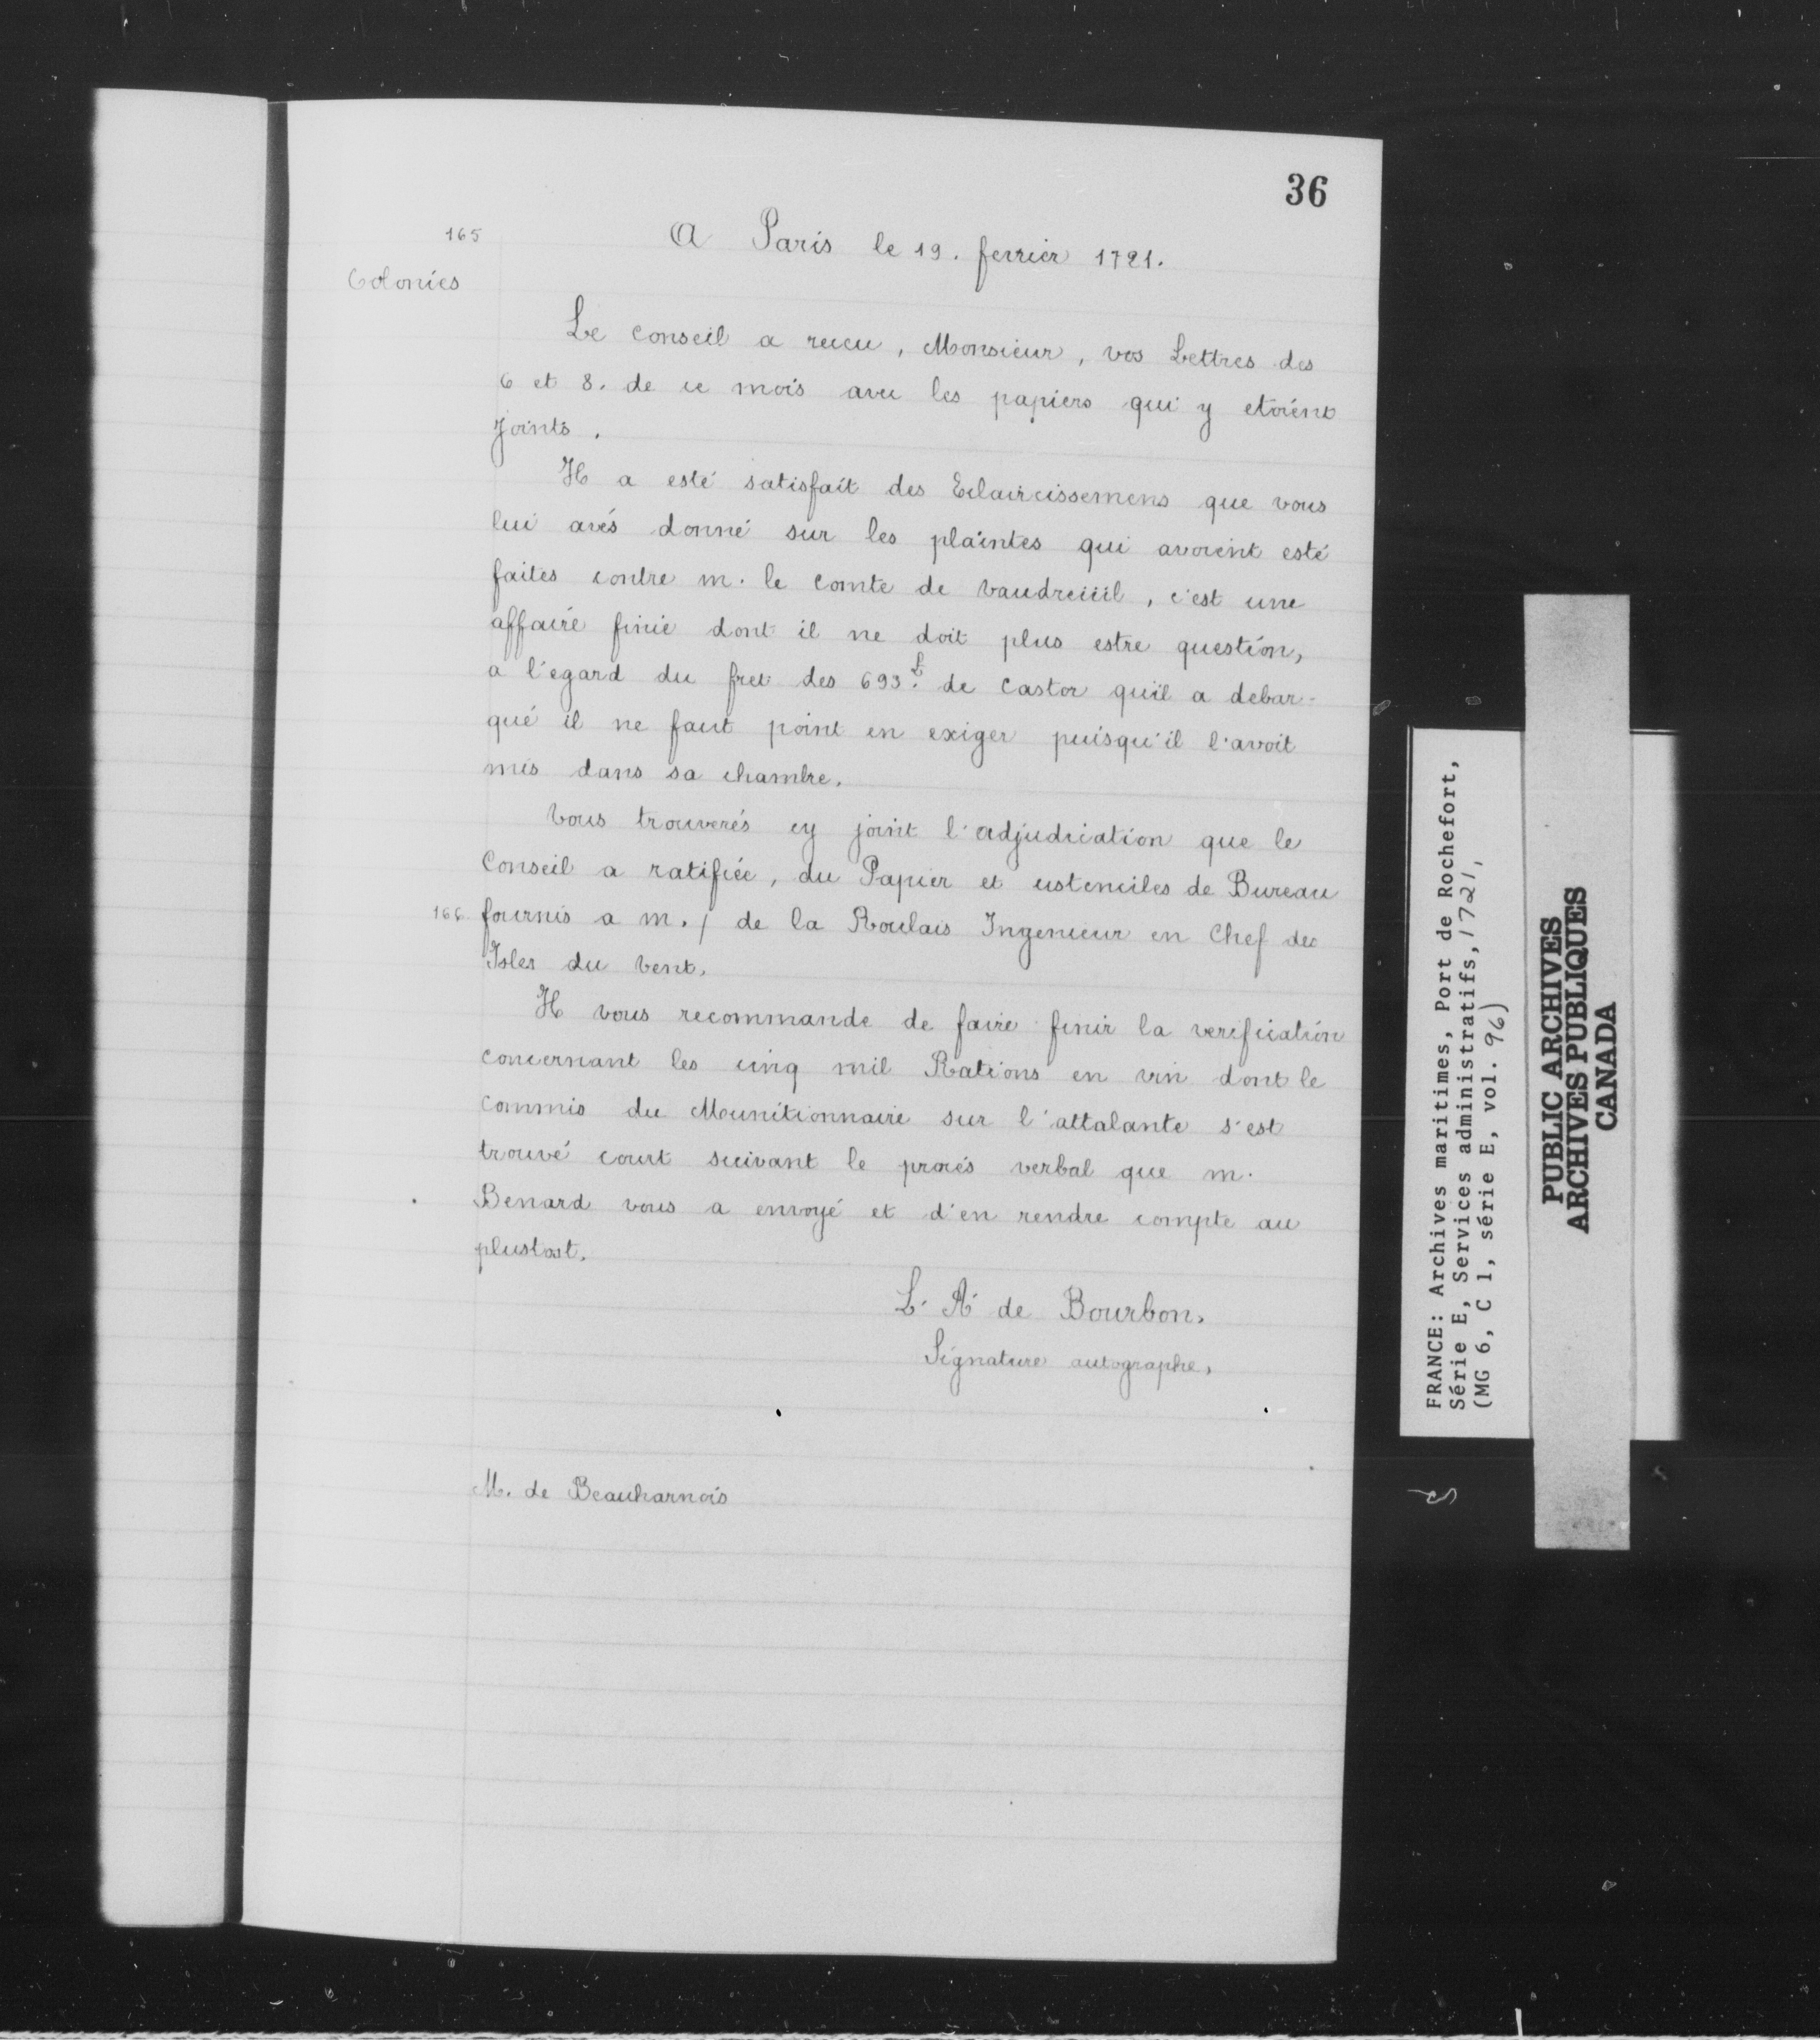 36
165
A Paris le 19. fevrier 1721.
Colonies
Le conseil a receu, Monsieur, vos Lettres des
6 et 8. de ce mois avec les papiers qui y etoient
joints.
Il a esté satisfait des Eclaircissemens que vous
lui avés donné sur les plaintes qui avoient esté
faites contre m. le comte de Vaudreüil, c'est une
affaire finie dont il ne doit plus estre question,
a l'egard du fret des 693.ᵗ de Castor qu'il a debar-
qué il ne faut point en exiger puisqu'il l'avoit
mis dans sa chambre.
Vous trouverés cy joint l'adjudication que le
Conseil a ratifiée, du Papier et ustenciles de Bureau
166 fournis a m./ de la Roulais Ingenieur en Chef des
Isles du Vent.
Il vous recommande de faire finir la verification
concernant les cinq mil Rations en vin dont le
commis du Mounitionnaire sur l'attalante s'est
trouvé court suivant le procés verbal que m.
Benard vous a envoyé et d'en rendre compte au
plustost.
L. A. de Bourbon.
Signature autographe.
M. de Beauharnois
FRANCE: Archives maritimes, Port de Rochefort,
Série E, Services administratifs, 1721,
(MG 6, C 1, série E, vol. 96)
PUBLIC ARCHIVES
ARCHIVES PUBLIQUES
CANADA